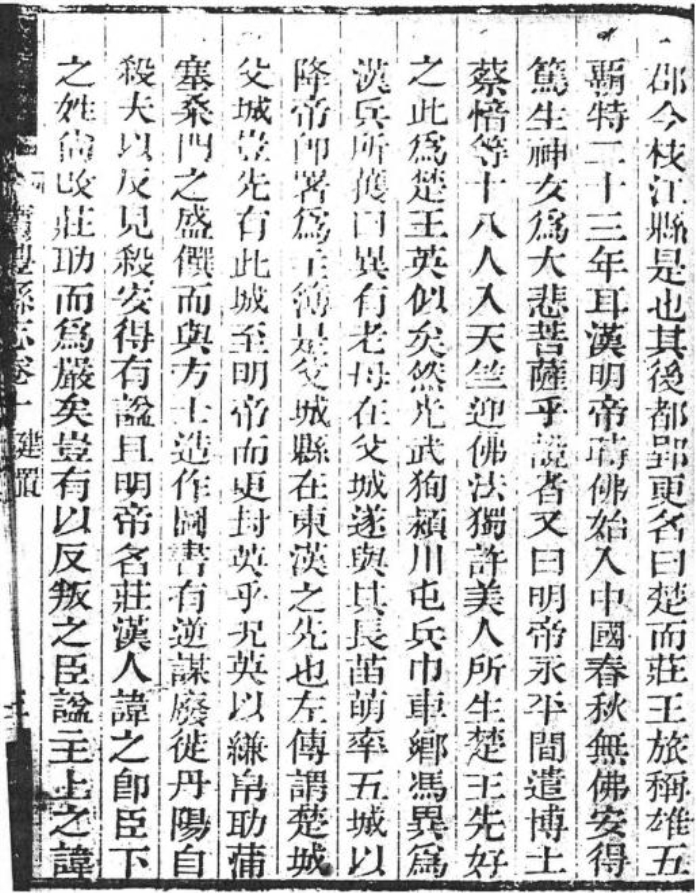 郡今枝江縣是也其後都郢更名曰楚而莊王旅稱雄五
霸特二十三年耳漢明帝時佛始入中國春秋無佛安得
篤生神女爲大悲菩薩乎說者又曰明帝永平間遣博士
蔡愔等十八人入天竺迎佛法獨許美人所生楚王先好
之此爲楚王英似矣然光武狥潁川屯兵巾車鄉馮異爲
漢兵所獲曰異有老母在父城遂與其長苗萌率五城以
降帝即署爲主簿是父城縣在東漢之先也左傳謂楚城
父城豈先有此城至明帝而更封英乎况英以縑帛助蒲
塞桑門之盛饌而與方士造作圖書有逆謀廢徙丹陽自
殺夫以反見殺安得有諡且明帝名莊漢人諱之卽臣下
之姓尙改莊助而爲嚴矣豈有以反叛之臣諡主上之諱
寶豐縣志卷 建置